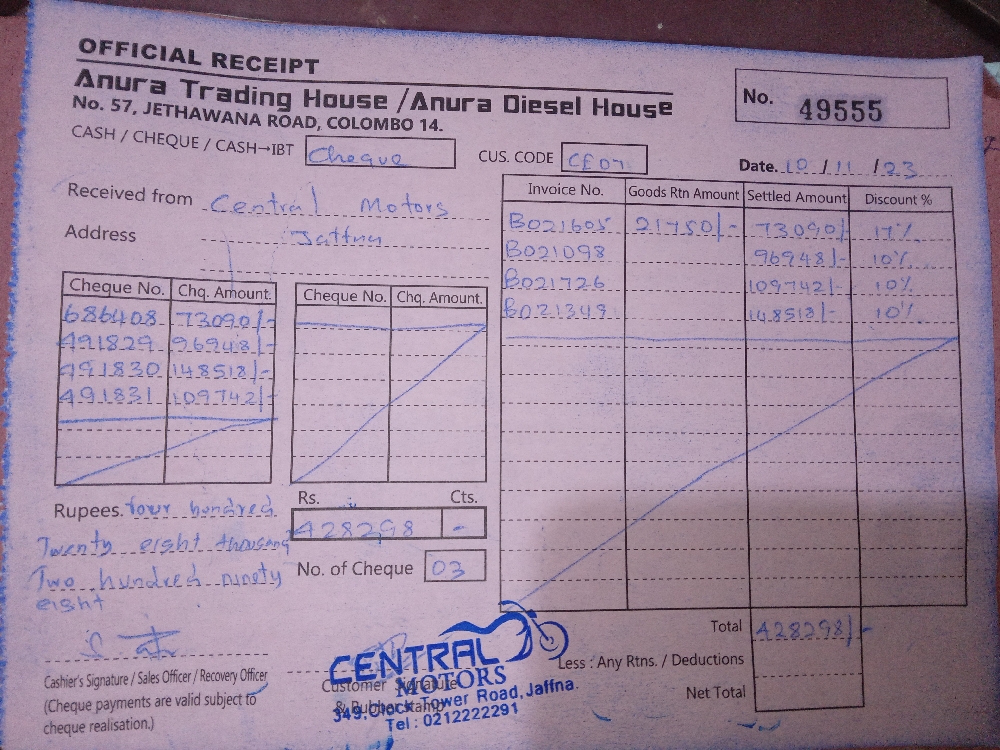 OFFICIAL RECEIPT
Anura Trading House /Anura Diesel House
No. 57, JETHAWANA ROAD, COLOMBO 14.
No. 49555
CASH / CHEQUE / CASH→IBT Cheque
CUS. CODE CE07
Date. 10 /11 /23
Received from Central Motors
Address Jaffna
Invoice No. Goods Rtn Amount Settled Amount Discount %
B021605 21750/- 73090/- 17%
B021098 96948/- 10%
B021726 109742/- 10%
B021349 148518/- 10%
Cheque No. Chq. Amount. Cheque No. Chq. Amount.
686408 73090/-
491829 96948/-
491830 148518/-
491831 109742/-
Rupees. four hundred
Twenty eight thousand
Two hundred ninety
eight
Rs. Cts.
428298 -
No. of Cheque 03
Total 428298/-
Less : Any Rtns. / Deductions
Net Total
Cashier's Signature / Sales Officer / Recovery Officer
(Cheque payments are valid subject to
cheque realisation.)
Customer Signature
& Rubber Stamp
CENTRAL
MOTORS
349, Clock Tower Road, Jaffna.
Tel : 0212222291